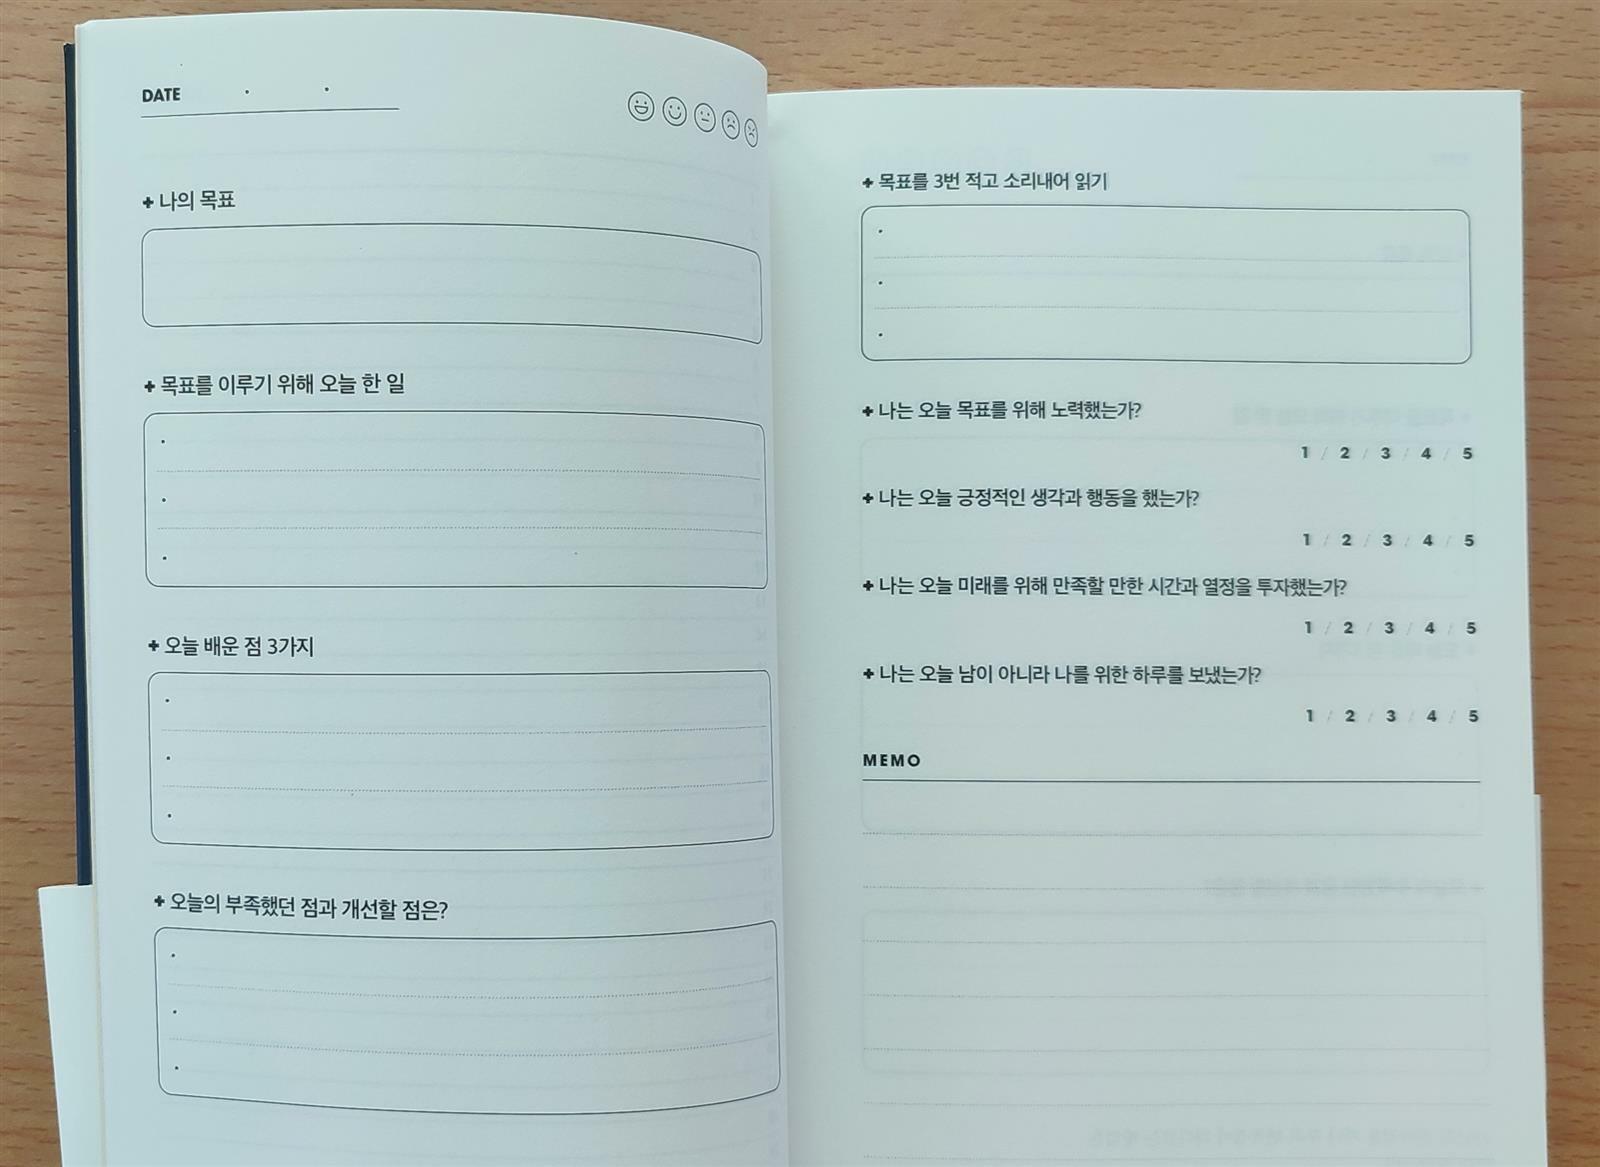 DATE . .
+ 나의 목표
+ 목표를 이루기 위해 오늘 한 일
+ 오늘 배운 점 3가지
+ 오늘의 부족했던 점과 개선할 점은?
+ 목표를 3번 적고 소리내어 읽기
+ 나는 오늘 목표를 위해 노력했는가?
1 / 2 / 3 / 4 / 5
+ 나는 오늘 긍정적인 생각과 행동을 했는가?
1 / 2 / 3 / 4 / 5
+ 나는 오늘 미래를 위해 만족할 만한 시간과 열정을 투자했는가?
1 / 2 / 3 / 4 / 5
+ 나는 오늘 남이 아니라 나를 위한 하루를 보냈는가?
1 / 2 / 3 / 4 / 5
MEMO